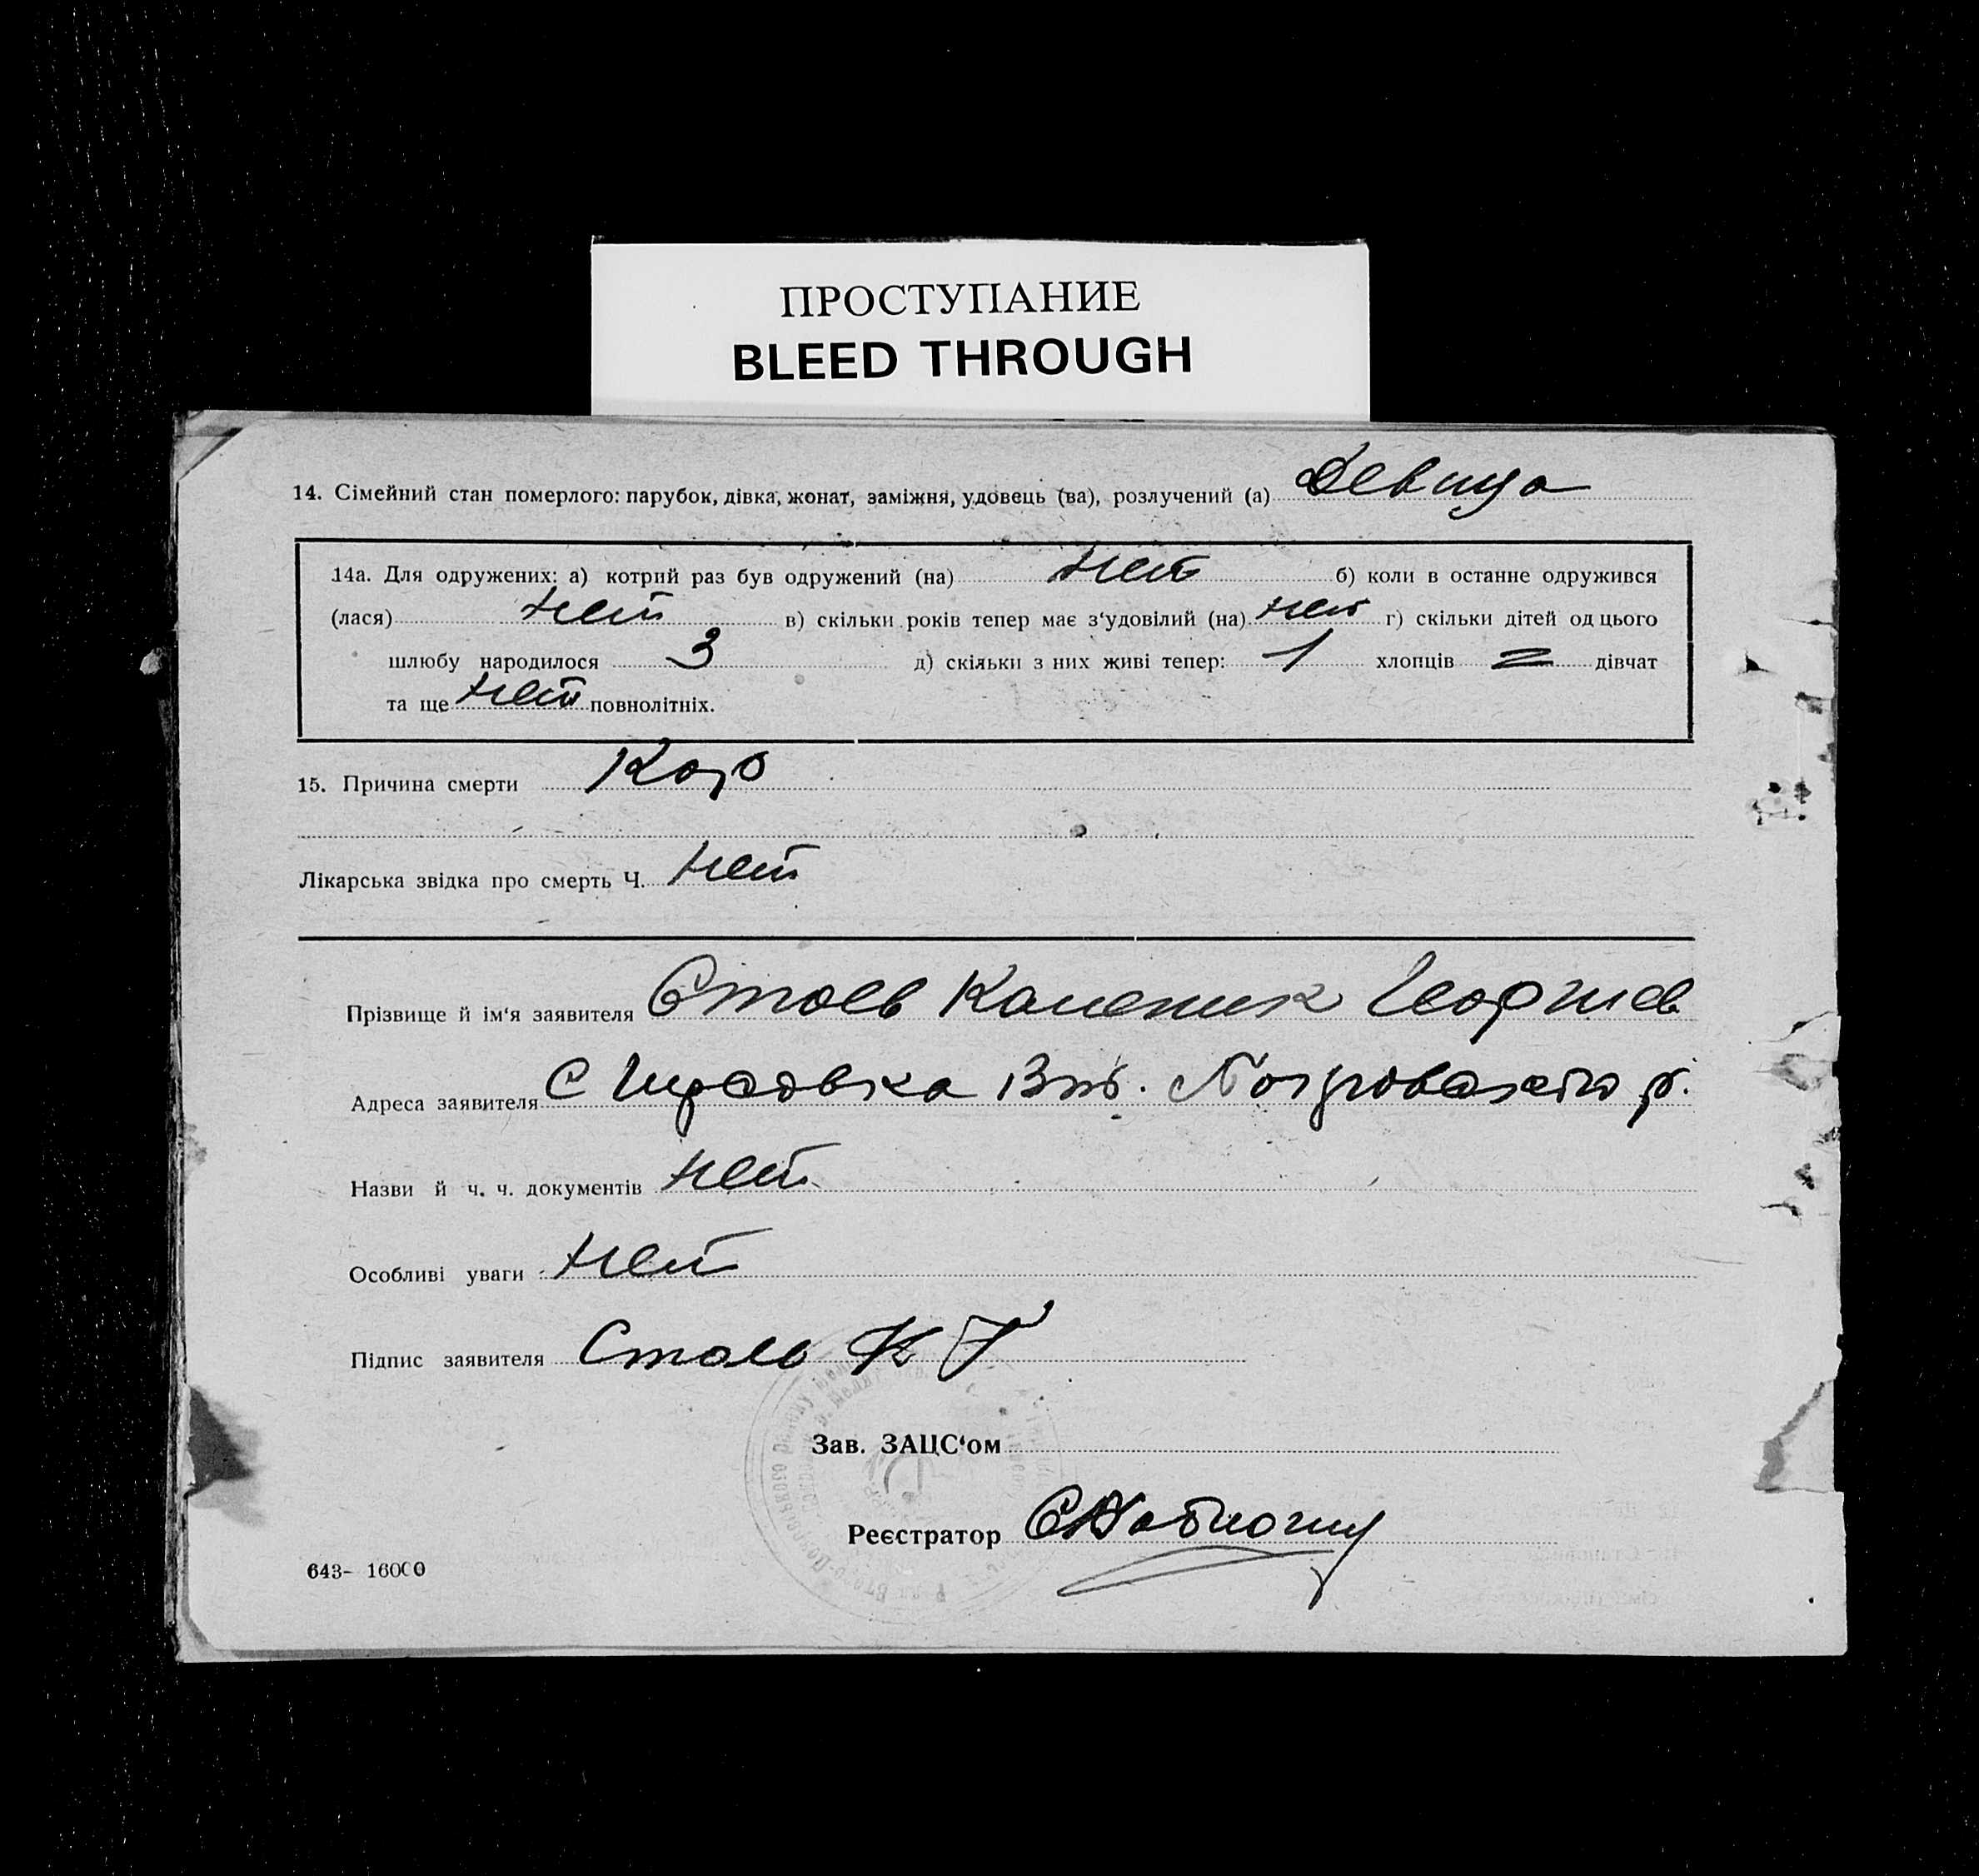 ПРОСТУПАНИЕ
BLEED THROUGH
14. Сімейний стан померлого: парубок, дівка, жонат, заміжня, удовець (ва), розлучений (а) Девица
14а. Для одружених: а) котрий раз був одружений (на) нет б) коли в останне одружився
(лася) нет в) скільки років тепер має з‘удовілий (на) нет г) скільки дітей од цього
шлюбу народилося 3 д) скільки з них живі тепер: 1 хлопців 2 дівчат
та ще нет повнолітніх.
15. Причина смерти Кор
Лікарська звідка про смерть Ч. нет
Прізвище й ім‘я заявителя Стоев Георгиев
Адреса заявителя С р.
Назви й ч. ч. документів нет
Особливі уваги нет
Підпис заявителя Стоев К Г
Зав. ЗАЦС‘ом
Реєстратор
643- 16000